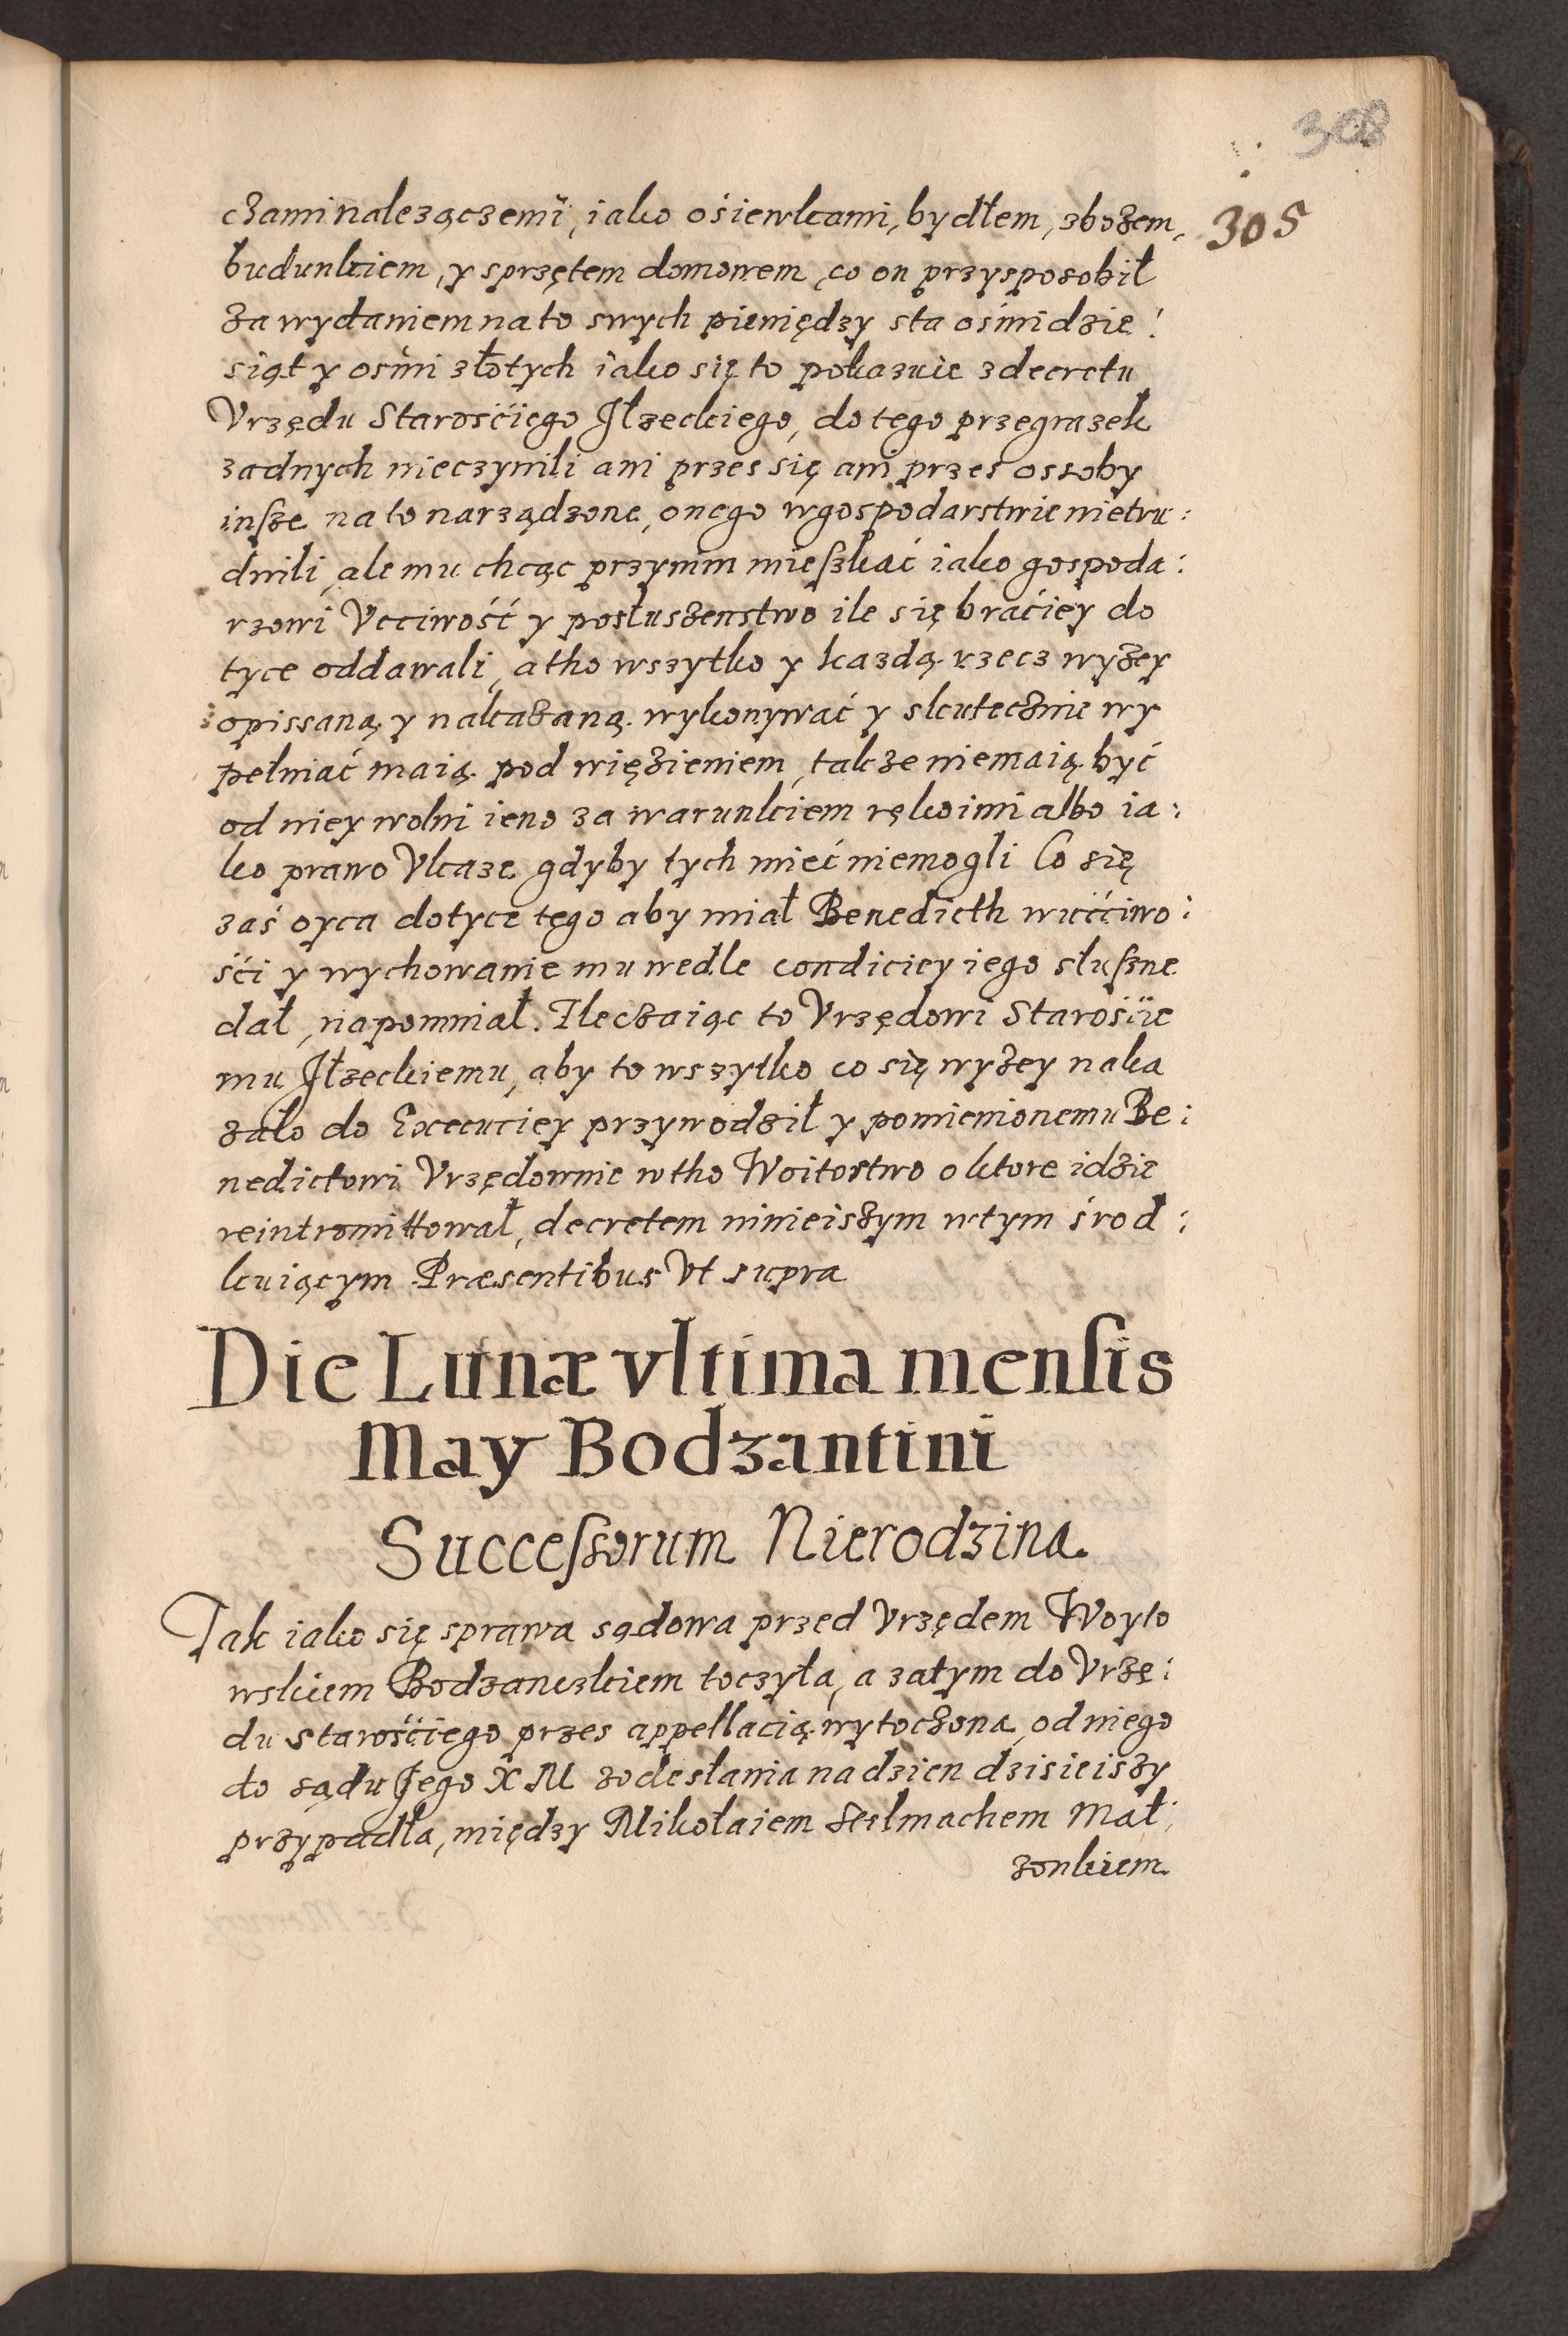 308
305
czami nalezączemi, iako ośiewkami, bydłem, zbożem,
budunkiem, y sprzętem domowem, co on przysposobił
za wydaniem na to swych pieniędzy sta ośmidzie:
siąt y ośmi złotych iako się to pokazuie z decretu
Vrzędu Starośćiego Jłzeckiego, do tego przegrazek
zadnych nieczynili ani przes się ani przes ossoby
insze na to narządzone, onego w gospodarstwie nietru:
dnili, ale mu chcąc przy nim mieszkać iako gospoda:
rzowi Vcciwość y posłuszenstwo ile się braćiey do
tyce oddawali, a tho wszytko y kazdą rzecz wyżey
opissaną y nakazaną wykonywać y skutecznie wy
pełniać maią pod więzieniem, takze niemaią być
od niey wolni ieno za warunkiem rękoimi albo ia:
ko prawo Vkaze gdyby tych mieć niemogli Co się
zaś oyca dotyce tego aby miał Benedicth w uććiwo:
śći y wychowanie mu wedle condiciey iego słuszne
dał, napomniał. Zleczaiąc to Vrzędowi Starośćie
mu Jłzeckiemu, aby to wszytko co się wyżey naka
zało do Execuciey przywodził y pomienionemu Be:
nedictowi Vrzędownie w tho Woitostwo o ktore idzie
reintromittował, decretem ninieiszym w tym środ:
kuiącym Præsentibus Vt supra
Die Lunæ vltima mensis
May Bodzantini
Successorum Nierodzina.
Tak iako się sprawa sądowa przed Vrzędem Woyto
wskiem Bodzanczkiem toczyła, a zatym do Vrzę:
du starośćiego przes appellacią wytoczona, od niego
do sądu Jego X M z odesłania na dzien dzisieiszy
przypadła, między Mikołaiem Stelmachem Mał:
zonkiem